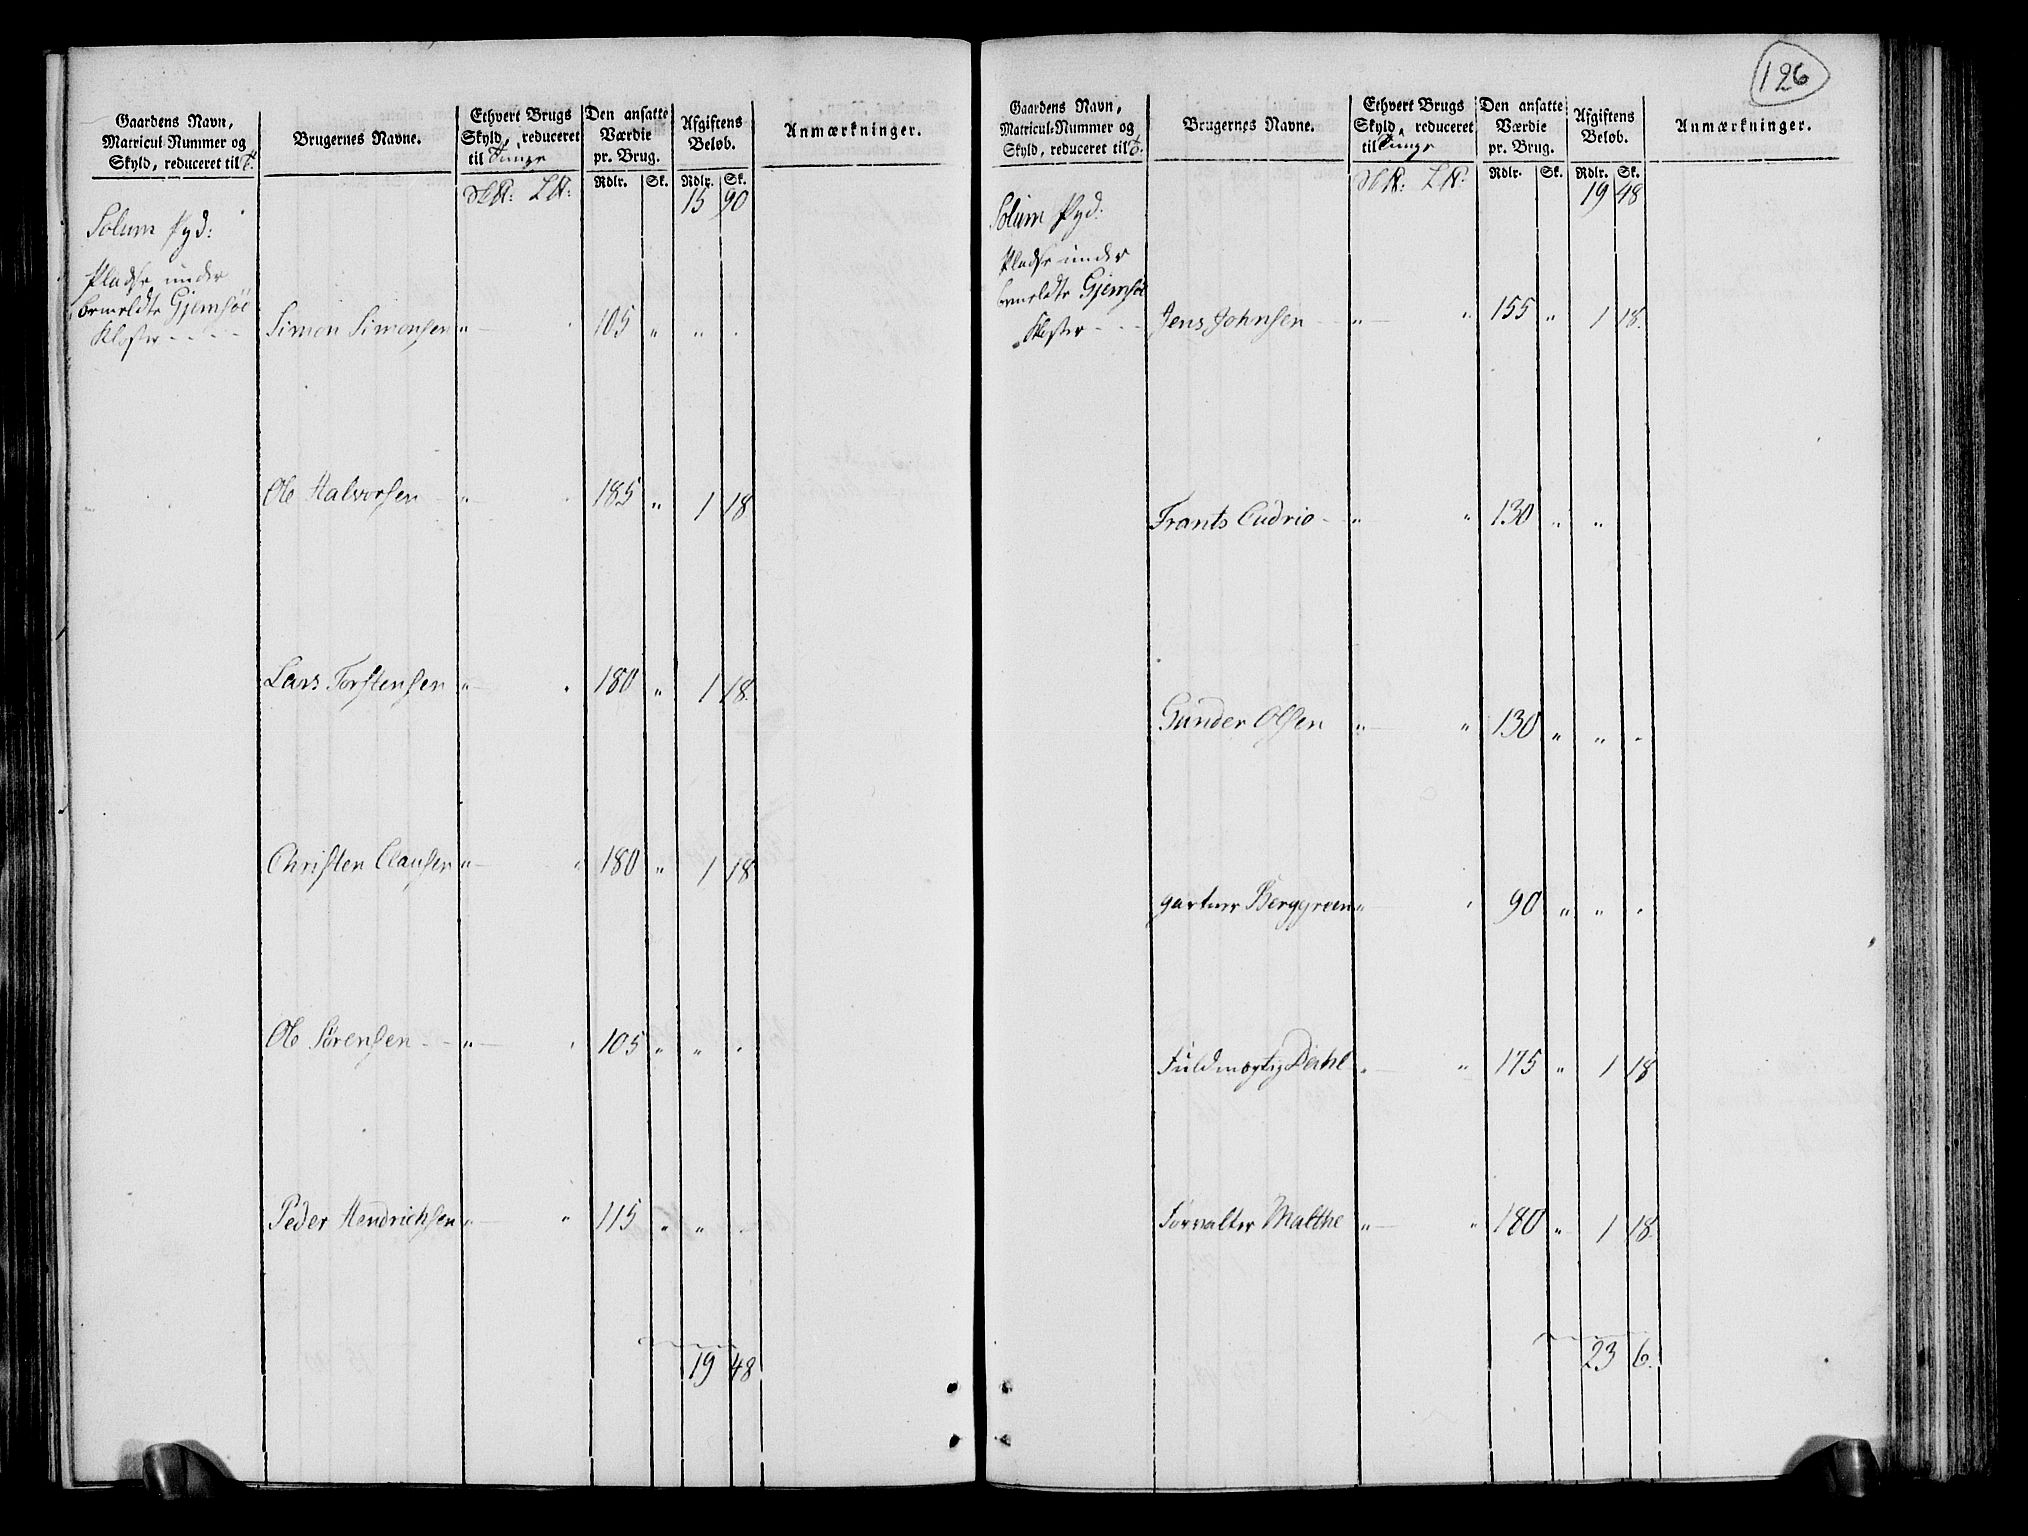 126
Gaardens Navn,
Matricul-Nummer og
Skyld, reduceret til
Brugernes Navne.
Ethvert Brugs
Skyld, reduceret
til Tunge
Den ansatte
Værdie
pr. Brug.
Afgiftens
Beløb.
Anmærkninger.
Rdlr. Sk. Rdlr. Sk.
15 90
Solum Pgd:
Pladse under
bemeldte Gjemsøe
Kloster - - - -
Simon Simonsen " 105 " "
Ole Halvorsen " 185 " 1 18
Lars Torstensen " " 180 " 1 18.
Christen Clausen " " 180 " 1 18
Ole Sørensen - - " " 105 " " "
Peder Hendrichsen " " 115 " "
19 48
Gaardens Navn,
Matricul-Nummer og
Skyld, reduceret til
Brugernes Navne.
Ethvert Brugs
Skyld, reduceret
til Tunge
Den ansatte
Værdie
pr. Brug.
Afgiftens
Beløb.
Anmærkninger.
Rdlr. Sk. Rdlr. Sk.
19 48
Solum Pgd:
Pladse under
bemeldte Gjemsøe
Kloster - - -
Jens Johnsen - - " " 155 " 1 18.
Frants Cudrio - " " 130 " "
Gunder Olsen " " 130 " " "
gartner Berggreen " " 90 " " "
Fuldmægtig Dahl " " 175 " 1 18
Forvalter Malthe " " 180 " 1 18.
23 6.